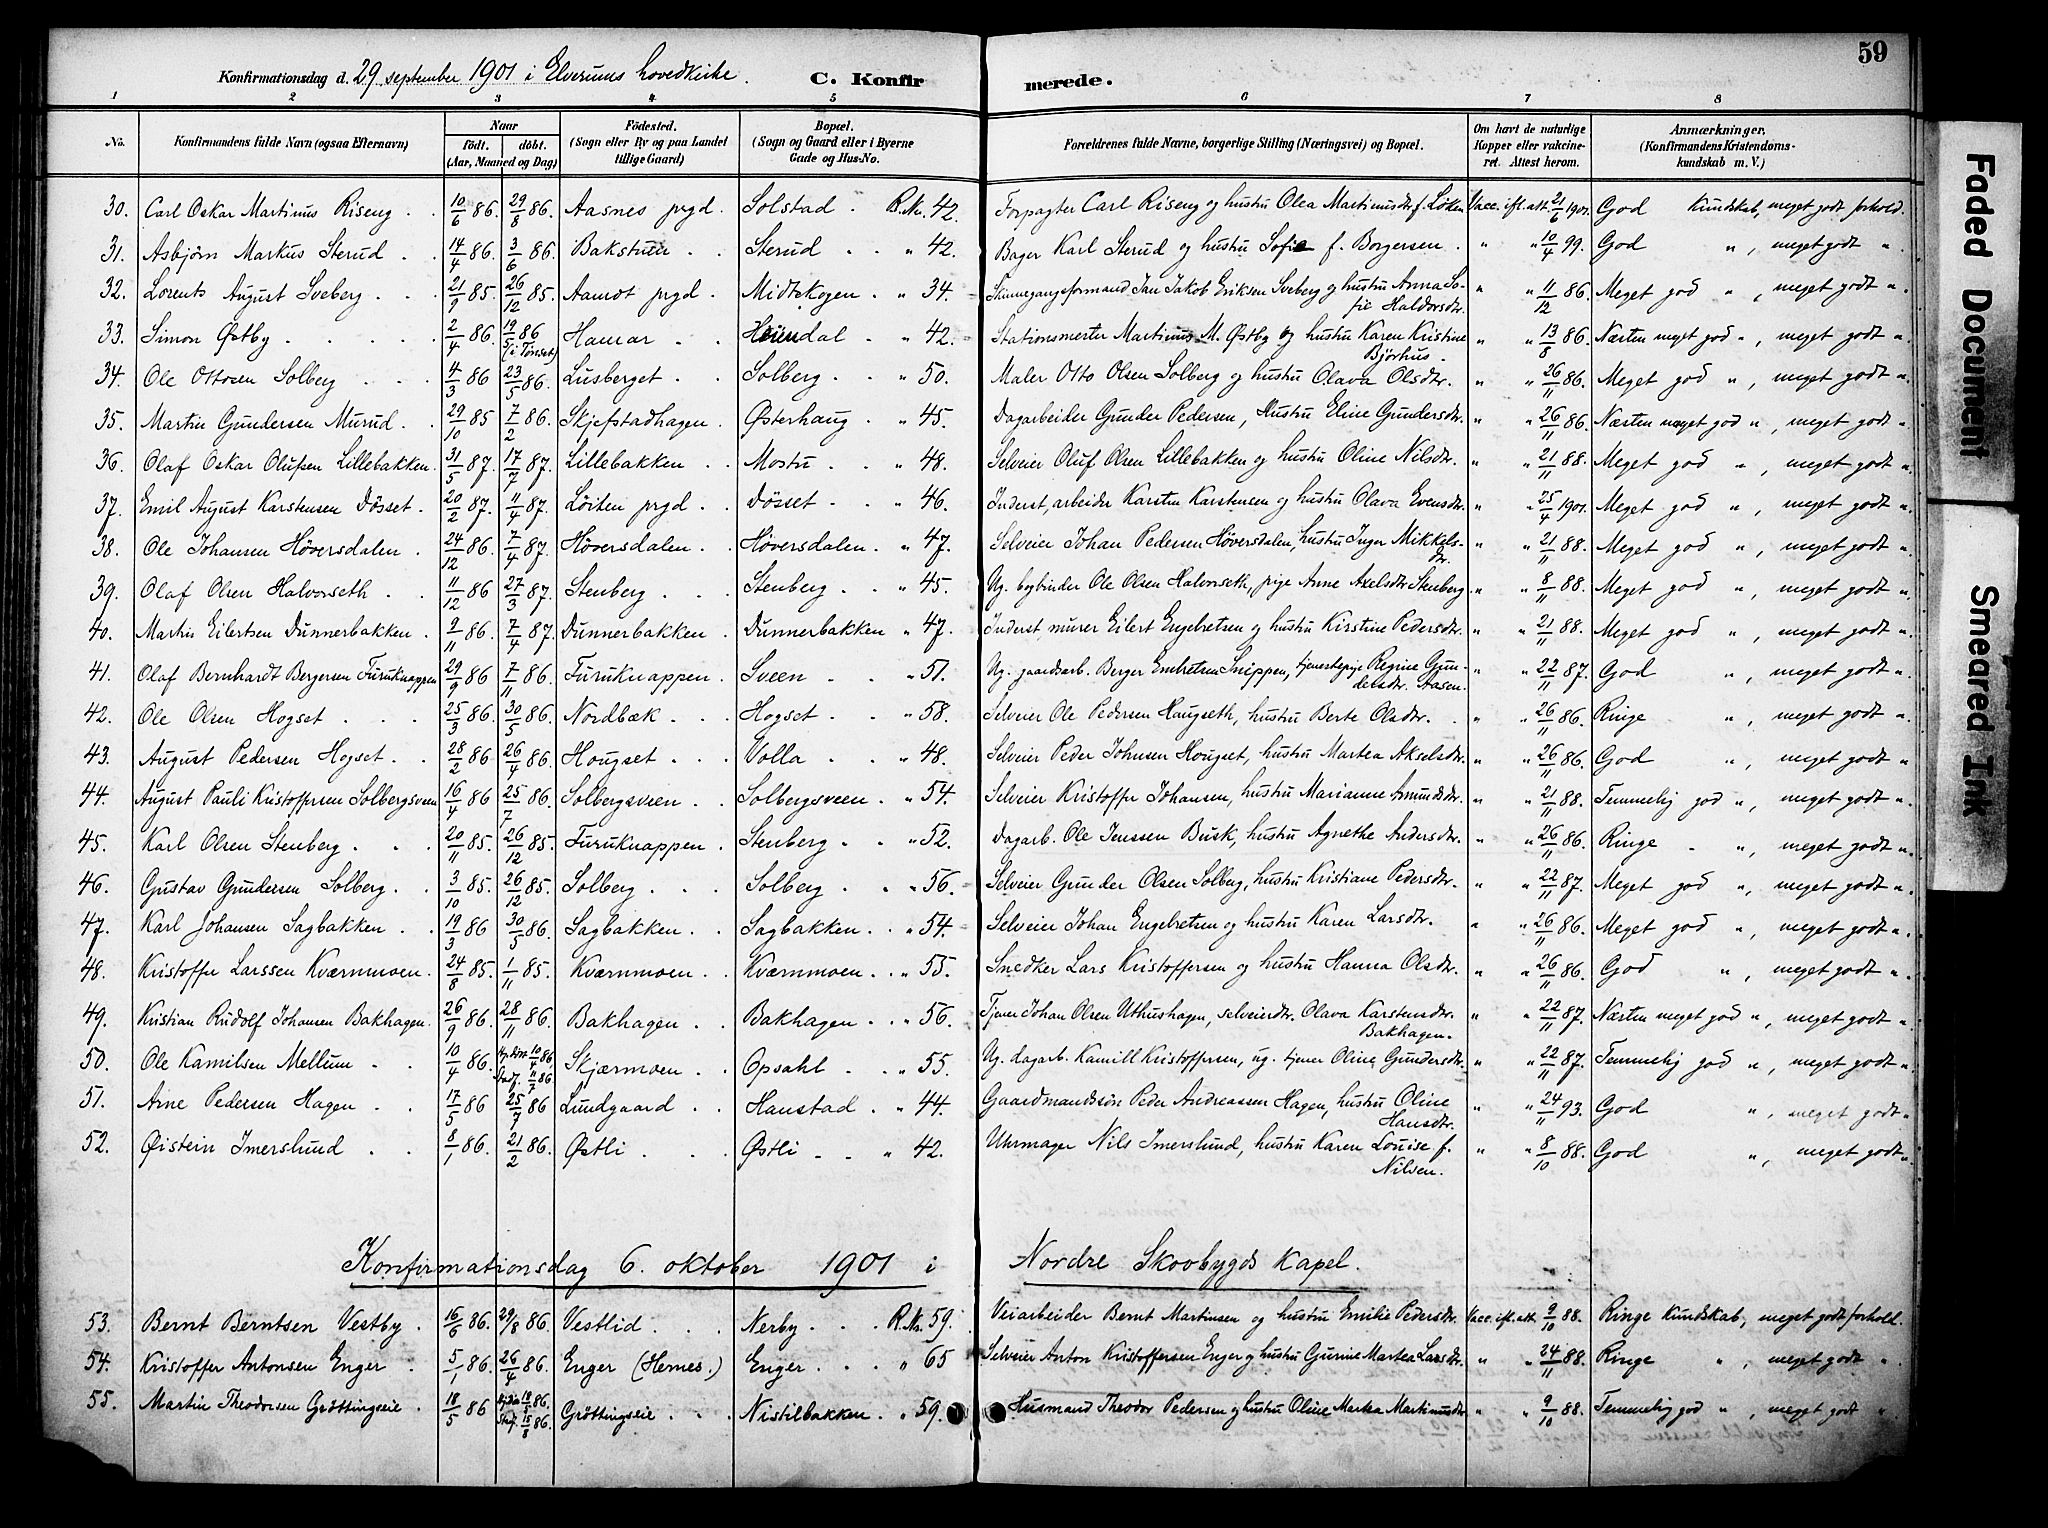 59
Konfirmationsdag d. 29 september 1901 i Elverums hovedkirke. C. Konfirmerede.
1 2 3 4 5 6 7 8
No. Konfirmandens fulde Navn (ogsaa Efternavn) Naar født. døbt. (Aar, Maaned og Dag) Fødested. (Sogn eller By og paa Landet tillige Gaard) Bopæl. (Sogn og Gaard eller i Byerne Gade og Hus-No. Forældrenes fulde Navne, borgerlige Stilling (Næringsvei) og Bopæl. Om havt de naturlige Kopper eller vakcineret. Attest herom. Anmærkninger. (Konfirmandens Kristendomskundskab m. V.)
30. Carl Oskar Martinus Riseng 10/6 86. 29/8 86. Aasnes prgd. Solstad R.No. 42. Forpagter Carl Riseng og hustru Olea Martinusdtr. f. Löken Vacc. ifl. att. 21/6 1901. God kundskab, meget godt forhold.
31. Asbjørn Markus Sterud 14/4 86. 3/6 86. Bakstuen Sterud " 42. Bager Karl Sterud og hustru Sofie f. Borgersen " " 10/4 99. God " , meget godt "
32. Lorents August Sveberg 21/9 85. 26/12 85. Aamot prgd. Midtskogen " 34. Skinnegangsformand Jan Jakob Eriksen Sveberg og hustru Anna Sofie Haldorsdtr. " " 11/12 86. Meget god " , meget godt "
33. Simon Østby 2/4 86. 19/5 86 (i Tønset) Hamar Heirdal " 42. Stationsmester Martinus M. Østby og hustru Karen Kristine Bjørhus " " 13/8 86. Næsten meget god " , meget godt "
34. Ole Ottosen Solberg 4/3 86 23/5 86. Lusberget Solberg " 50. Maler Otto Olsen Solberg og hustru Olava Olsdtr. " " 26/11 86. Meget god " , meget godt "
35. Martin Gundersen Murud 29/10 85 7/2 86. Skjefstadhagen Østerhaug " 45. Dagarbeider Gunder Pedersen, Hustru Eline Gundersdtr. " " 26/11 86. Næsten meget god " , meget godt "
36. Olaf Oskar Olufsen Lillebakken 31/5 87. 17/7 87. Lillebakken Mostu " 48. Selveier Oluf Olsen Lillebakken og hustru Oline Nilsdtr. " " 21/11 88. Meget god " , meget godt "
37. Emil August Karstensen Dösset 20/2 87. 11/4 87. Löiten prgd Dösset " 46. Inderst, arbeider Karsten Karstensen og hustru Olava Evensdtr. " " 25/4 1901. Meget god " , meget godt "
38. Ole Johansen Höversdalen 24/12 86. 7/4 87. Höversdalen Höversdalen " 47. Selveier Johan Pedersen Höversdalen, hustru Inger Mikkelsdtr. " " 21/11 88. Meget god " , meget godt "
39. Olaf Olsen Halvorseth 11/12 86 27/3 87. Stenberg Stenberg " 45. Ug. bogbinder Ole Olsen Halvorseth, pige Anne Axelsdtr Stenberg " " 8/11 88. Meget god " , meget godt "
40. Martin Eilertsen Dunnerbakken 9/11 86. 7/4 87. Dunnerbakken Dunnerbakken " 47. Inderst, murer Eilert Engebretsen og hustru Kirstine Pedersdtr. " " 21/11 88. Meget god " , meget godt "
41. Olaf Bernhardt Bergersen Furuknappen 29/9 86 7/11 86. Furuknappen Sveen " 51. Ug. gaardsarb. Berger Embretsen Snippen, tjenestepige Regine Gundersdtr. Aasen. " " 22/11 87. God " , meget godt "
42. Ole Olsen Hogset 25/3 86. 30/5 86. Nordbæk Hogset " 58. Selveier Ole Pedersen Haugseth, hustru Berte Olsdtr. " " 26/11 86. Ringe " , meget godt "
43. August Pedersen Hogset 28/2 86 26/4 86. Hougset Volla " 48. Selveier Peder Johnsen Hougset, hustru Martea Akselsdtr. " " 26/11 86. God " , meget godt "
44. August Pauli Kristoffersen Solbergsveen 16/4 86 25/7 86. Solbergsveen Solbergsveen " 54. Selveier Kristoffer Johansen, hustru Marianne Asmundsdtr. " " 21/11 88. Temmelig god " , meget godt "
45. Karl Olsen Stenberg 20/11 85. 26/12 85. Furuknappen Stenberg " 52. Dagarb. Ole Jenssen Busk, hustru Agnethe Andersdtr. " " 26/11 86. Ringe " , meget godt "
46. Gustav Gundersen Solberg 3/10 85. 26/12 85. Solberg Solberg " 56. Selveier Gunder Olsen Solberg, hustru Kristiane Pedersdtr. " " 22/11 87. Meget god " , meget godt "
47. Karl Johansen Sagbakken 19/3 86 30/5 86. Sagbakken Sagbakken " 54. Selveier Johan Engebretsen og hustru Karen Larsdtr. " " 26/11 86. Meget god " , meget godt "
48. Kristoffer Larssen Kværnmoen 24/8 85. 1/11 85. Kværnmoen Kværnmoen " 55. Snedker Lars Kristoffersen og hustru Hanna Olsdtr. " " 26/11 86. God " , meget godt "
49. Kristian Rudolf Johansen Bakhagen 26/9 86. 28/11 86. Bakhagen Bakhagen " 56. Tjener Johan Olsen Uthushagen, selveierdtr. Olava Karstensdtr. Bakhagen. " " 22/11 87. Næsten meget god " , meget godt "
50. Ole Kamilsen Mellum 10/4 86. 10/4 86, Stadf. 11/7 86 Skjærmoen Opsahl " 55. Ug. dagarb. Kamill Kristoffersen, ug. tjener Oline Gundersdtr. " " 22/11 87. Temmelig god " , meget godt "
51. Arne Pedersen Hagen 17/5 86 25/7 86 Lundgaard Hanstad " 44. Gaardmandssøn Peder Andreassen Hagen, hustru Oline Hansdtr. " " 24/11 93. God " , meget godt "
52. Øistein Imerslund 8/1 86. 21/2 86. Østli Østli " 42. Uhrmager Nils Imerslund, hustru Karen Louise f. Nilsen. " " 8/10 88. God " , meget godt "
Konfirmationsdag 6. oktober 1901 i Nordre Skovbygds kapel.
53. Bernt Berntsen Vestby 16/6 86. 29/8 86. Vestlid Nerby R.No. 59. Veiarbeider Bernt Martinsen og hustru Emilie Pedersdtr. Vacc. ifl. att. 9/10 88. Ringe kundskab, meget godt forhold.
54. Kristoffer Antonsen Enger 5/1 86. 26/4 86. Enger (Hernes.) Enger " 65 Selveier Anton Kristoffersen Enger og hustru Gunine Martea Larsdtr. " " 24/11 88. Ringe " , meget godt "
55. Martin Theodorsen Gröttingseie 18/5 86 18/5 86. Stadf. 15/8 86. Gröttingseie Nistilbakken " 59. Husmand Theodor Pedersen og hustru Oline Martea Martinusdtr " " 9/10 88. Temmelig god " , meget godt "
Faded Document
Smeared Ink